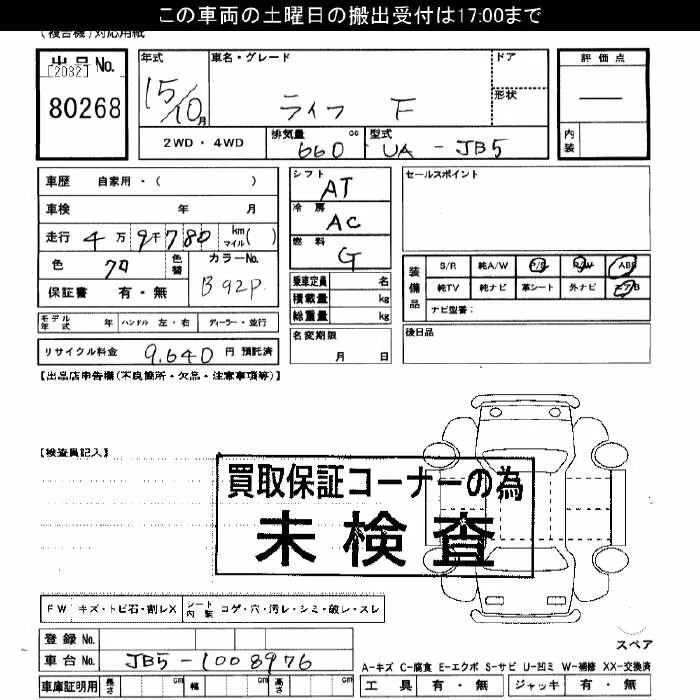 この車両の土曜日の搬出受付は17:00まで
(複合機)対応用紙
出品No.
[2032]
80268
年式
15/10月
車名・グレード
ライフ F
ドア
形状
2WD・4WD
排気量 cc
660
型式
UA - JB5
評価点
内装
車歴 自家用・( )
車検 年 月
走行 4万9千780 km マイル( )
色 クロ 色替
カラーNo.
B92P
保証書 有・無
シフト
AT
冷房
AC
燃料
G
乗車定員 名
積載量 kg
総重量 kg
名変期限
月 日
セールスポイント
装備品
S/R 純A/W P/S P/W ABS
純TV 純ナビ 革シート 外ナビ エアB
ナビ型番:
後日品
モデル年式 年 ハンドル 左・右 ディーラー・並行
リサイクル料金 9,640 円 預託済
【出品店申告欄(不良箇所・欠品・注意事項等)】
【検査員記入】
買取保証コーナーの為
未検査
FW キズ・トビ石・割レX
シート内装 コゲ・穴・汚レ・シミ・破レ・スレ
登録No.
車台No. JB5-1008976
車庫証明用 長さ cm 幅 cm 高さ cm
スペア
A-キズ C-腐食 E-エクボ S-サビ U-凹ミ W-補修 XX-交換済
工具 有・無 ジャッキ 有・無